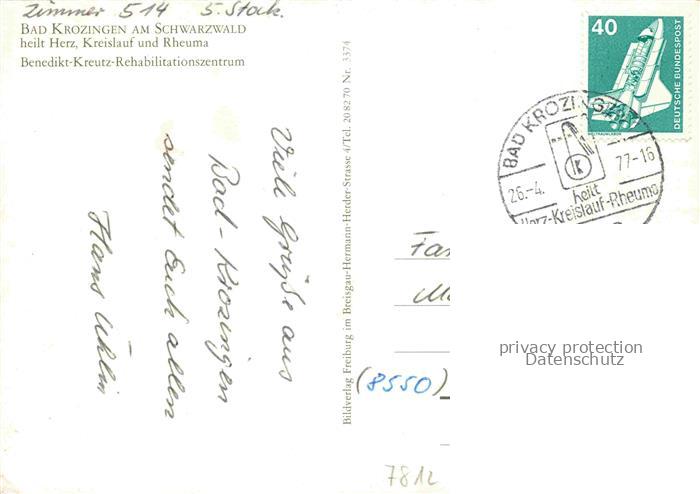 Zimmer 514 5. Stock.
BAD KROZINGEN AM SCHWARZWALD
heilt Herz, Kreislauf und Rheuma
Benedikt-Kreutz-Rehabilitationszentrum
Viele Grüße aus
Bad-Krozingen
sendet Euch allen
Hans
Bildverlag Freiburg im Breisgau-Hermann-Herder-Strasse 4/Tel. 20 82 70 Nr. 3374
40
DEUTSCHE BUNDESPOST
WELTRAUMLABOR
BAD KROZINGEN
K
26.-4.
77-16
heilt
Herz-Kreislauf-Rheuma
Fam
(8550)
7812
privacy protection
Datenschutz